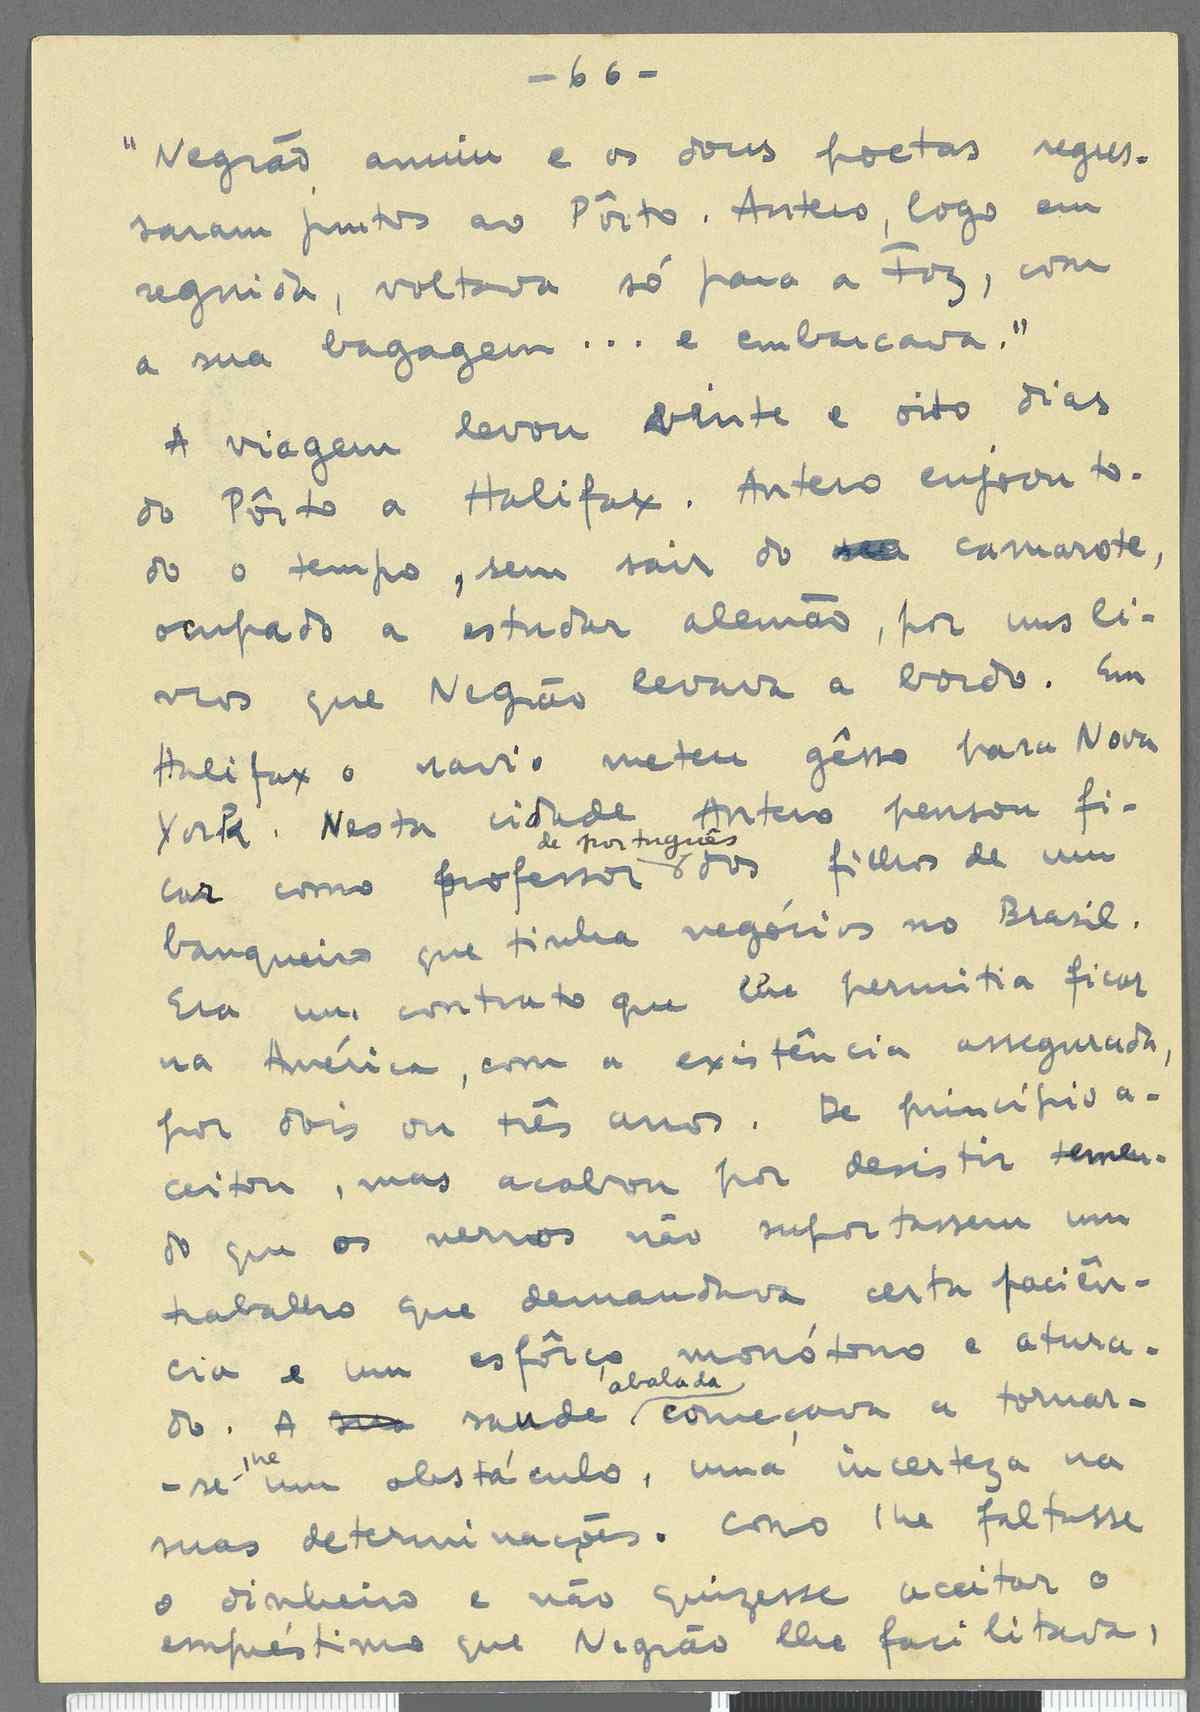 - 66 -
"Negrão anuiu e os dous poetas regres-
saram juntos ao Pôrto. Antero, logo em
seguida, voltava só para a Foz, com
a sua bagagem ... e embarcava."
A viagem levou vinte e oito dias
do Pôrto a Halifax. Antero enjoou to-
do o tempo, sem sair do camarote,
ocupado a estudar alemão, por uns li-
vros que Negrão levava a bordo. Em
Halifax o navio meteu gêsso para Nova
York. Nesta cidade Antero pensou fi-
de português
car como professor dos filhos de um
banqueiro que tinha negócios no Brasil.
Era um contrato que lhe permitia ficar
na América, com a existência assegurada,
por dois ou três anos. De princípio a-
ceitou, mas acabou por desistir temen-
do que os nervos não suportassem um
trabalho que demandava certa paciên-
cia e um esfôrço monótono e atura-
abalada
do. A sua saude começava a tornar-
-se-lhe um obstáculo, uma incerteza na
suas determinações. Como lhe faltasse
o dinheiro e não quizesse aceitar o
empréstimo que Negrão lhe facilitava,